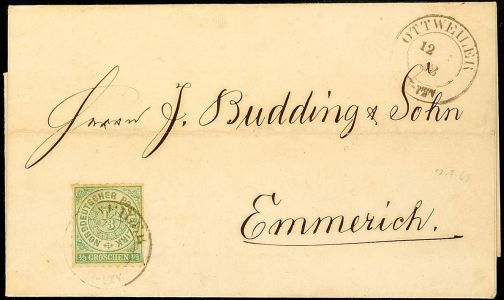 OTTWEILER
12
Herrn J. Budding & Sohn
Emmerich.
NORDDEUTSCHER POSTBEZIRK
1/3 GROSCHEN 1/3